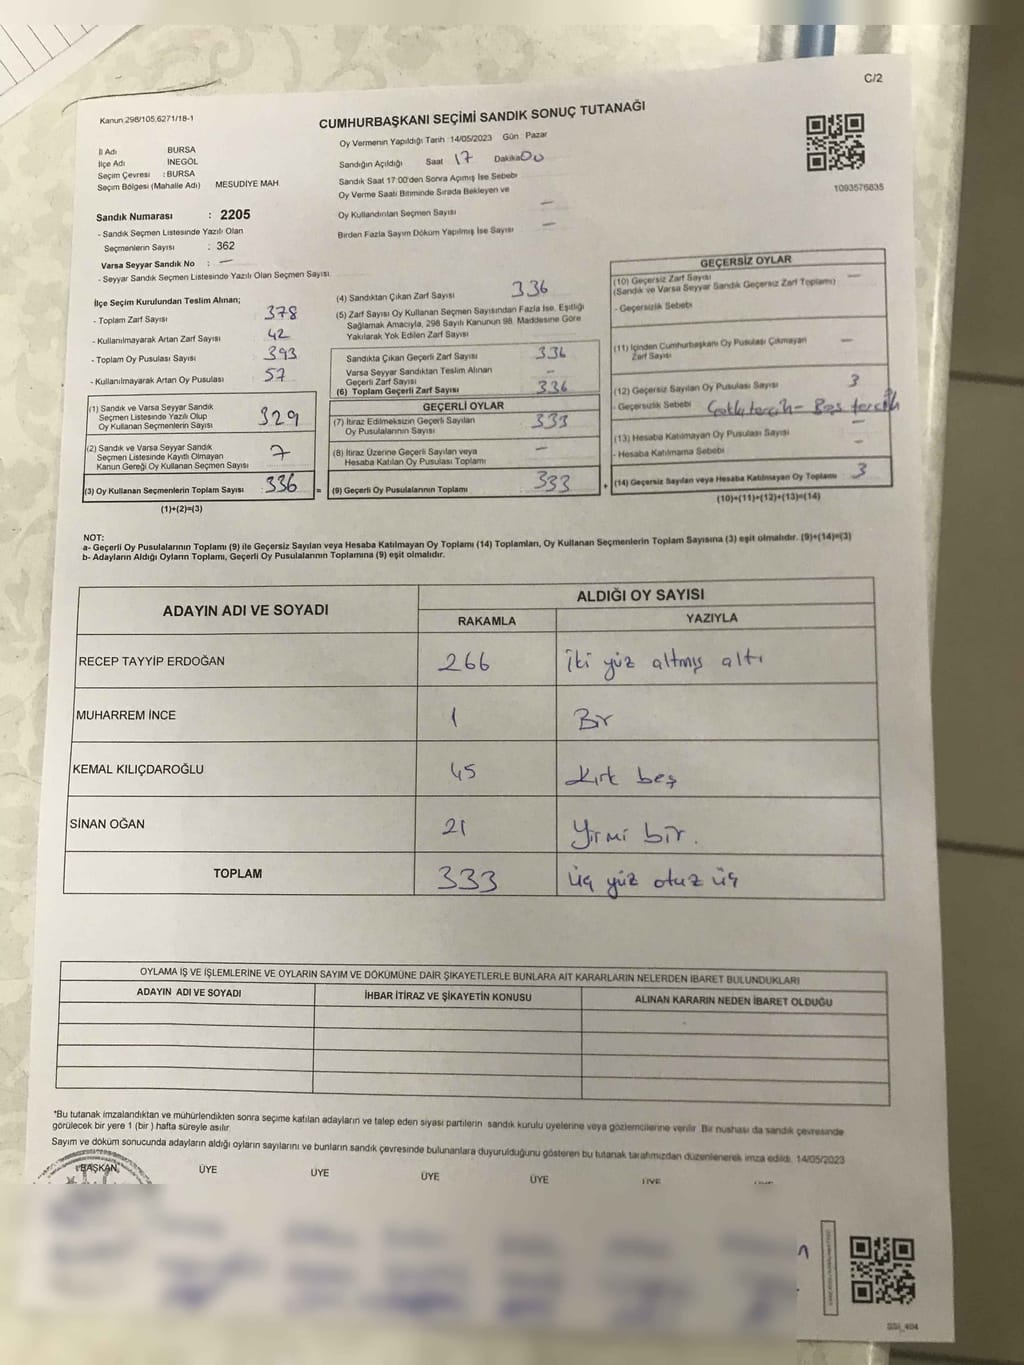 C/2
Kanun 298/105,6271/18-1
CUMHURBAŞKANI SEÇİMİ SANDIK SONUÇ TUTANAĞI
İl Adı BURSA
İlçe Adı INEGÖL
Seçim Çevresi : BURSA
Seçim Bölgesi (Mahalle Adı) MESUDİYE MAH.
Oy Vermenin Yapıldığı Tarih 14/05/2023 Gün : Pazar
Sandığın Açıldığı Saat 17 Dakika 00
Sandık Saat 17:00'den Sonra Açımış İse Sebebi
Oy Verme Saati Bitiminde Sırada Bekleyen ve
Oy Kullandırılan Seçmen Sayısı —
Birden Fazla Sayım Döküm Yapılmış İse Sayısı —
1093576835
Sandık Numarası : 2205
- Sandık Seçmen Listesinde Yazılı Olan
Seçmenlerin Sayısı : 362
Varsa Seyyar Sandık No : —
- Seyyar Sandık Seçmen Listesinde Yazılı Olan Seçmen Sayısı
İlçe Seçim Kurulundan Teslim Alınan;
- Toplam Zarf Sayısı 378
- Kullanılmayarak Artan Zarf Sayısı 42
- Toplam Oy Pusulası Sayısı 393
- Kullanılmayarak Artan Oy Pusulası 57
(1) Sandık ve Varsa Seyyar Sandık
Seçmen Listesinde Yazılı Olup
Oy Kullanan Seçmenlerin Sayısı 329
(2) Sandık ve Varsa Seyyar Sandık
Seçmen Listesinde Kayıtlı Olmayan
Kanun Gereği Oy Kullanan Seçmen Sayısı 7
(3) Oy Kullanan Seçmenlerin Toplam Sayısı 336 =
(1)+(2)=(3)
(4) Sandıktan Çıkan Zarf Sayısı 336
(5) Zarf Sayısı Oy Kullanan Seçmen Sayısından Fazla İse, Eşitliği
Sağlamak Amacıyla, 298 Sayılı Kanunun 98. Maddesine Göre
Yakılarak Yok Edilen Zarf Sayısı
Sandıkta Çıkan Geçerli Zarf Sayısı 336
Varsa Seyyar Sandıktan Teslim Alınan
Geçerli Zarf Sayısı —
(6) Toplam Geçerli Zarf Sayısı 336
GEÇERLİ OYLAR
(7) İtiraz Edilmeksizin Geçerli Sayılan
Oy Pusulalarının Sayısı 333
(8) İtiraz Üzerine Geçerli Sayılan veya
Hesaba Katılan Oy Pusulası Toplamı —
(9) Geçerli Oy Pusulalarının Toplamı 333 +
GEÇERSİZ OYLAR
(10) Geçersiz Zarf Sayısı —
(Sandık ve Varsa Seyyar Sandık Geçersiz Zarf Toplamı)
- Geçersizlik Sebebi
(11) İçinden Cumhurbaşkanı Oy Pusulası Çıkmayan —
Zarf Sayısı
(12) Geçersiz Sayılan Oy Pusulası Sayısı 3
- Geçersizlik Sebebi Çoklu tercih - Boş tercih
(13) Hesaba Katılmayan Oy Pusulası Sayısı —
- Hesaba Katılmama Sebebi —
(14) Geçersiz Sayılan veya Hesaba Katılmayan Oy Toplamı 3
(10)+(11)+(12)+(13)=(14)
NOT:
a- Geçerli Oy Pusulalarının Toplamı (9) ile Geçersiz Sayılan veya Hesaba Katılmayan Oy Toplamı (14) Toplamları, Oy Kullanan Seçmenlerin Toplam Sayısına (3) eşit olmalıdır. (9)+(14)=(3)
b- Adayların Aldığı Oyların Toplamı, Geçerli Oy Pusulalarının Toplamına (9) eşit olmalıdır.
ADAYIN ADI VE SOYADI
ALDIĞI OY SAYISI
RAKAMLA YAZIYLA
RECEP TAYYİP ERDOĞAN 266 İki yüz altmış altı
MUHARREM İNCE 1 Bir
KEMAL KILIÇDAROĞLU 45 Kırk beş
SİNAN OĞAN 21 Yirmi bir.
TOPLAM 333 üç yüz otuz üç
OYLAMA İŞ VE İŞLEMLERİNE VE OYLARIN SAYIM VE DÖKÜMÜNE DAİR ŞİKAYETLERLE BUNLARA AİT KARARLARIN NELERDEN İBARET BULUNDUKLARI
ADAYIN ADI VE SOYADI İHBAR İTİRAZ VE ŞİKAYETİN KONUSU ALINAN KARARIN NEDEN İBARET OLDUĞU
*Bu tutanak imzalandıktan ve mühürlendikten sonra seçime katılan adayların ve talep eden siyasi partilerin sandık kurulu üyelerine veya gözlemcilerine verilir. Bir nushası da sandık çevresinde
görülecek bir yere 1 (bir) hafta süreyle asılır.
Sayım ve döküm sonucunda adayların aldığı oyların sayılarını ve bunların sandık çevresinde bulunanlara duyurulduğunu gösteren bu tutanak tarafımızdan düzenlenerek imza edildi. 14/05/2023
BAŞKAN ÜYE ÜYE ÜYE ÜYE ÜYE